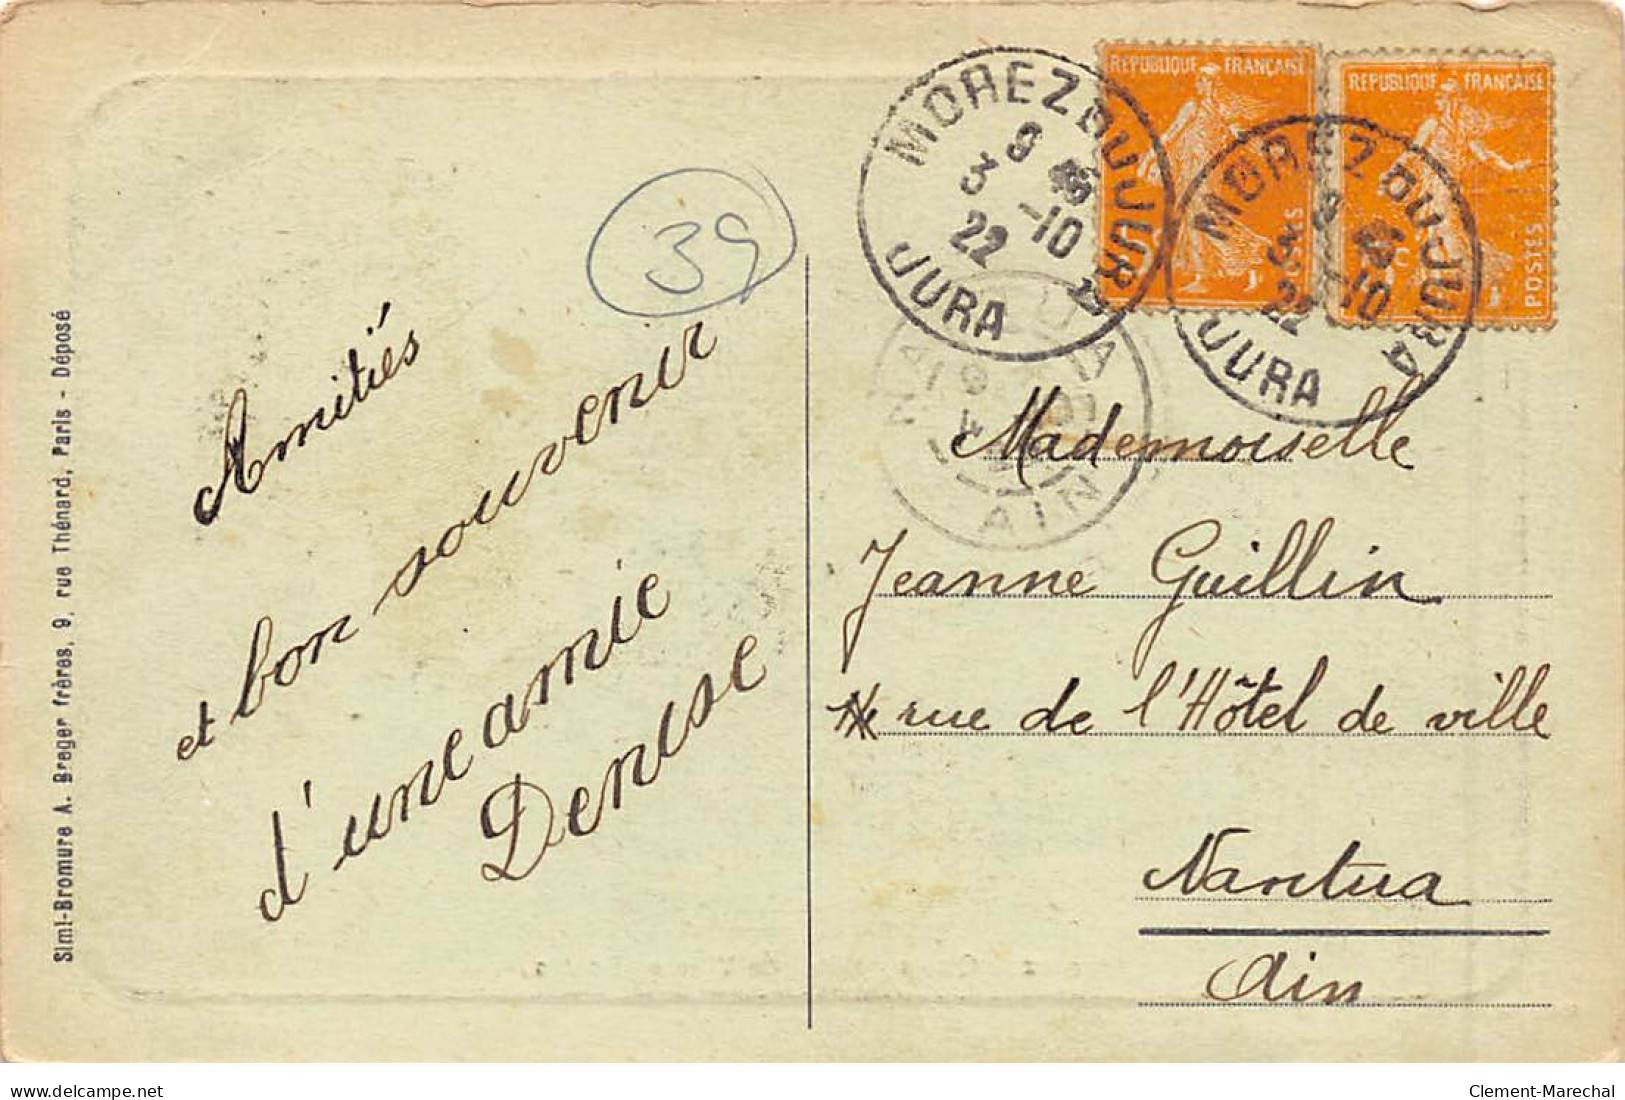 Simi-Bromure A. Breger frères, 9, rue Thénard, Paris - Déposé
39
Amitiés
et bon souvenir
d'une amie
Denise
MOREZ DU JURA
8 45
3 -10
22
JURA
REPUBLIQUE FRANÇAISE
POSTES
REPUBLIQUE FRANÇAISE
POSTES
MOREZ DU JURA
8 45
3 -10
22
JURA
NANTUA
AIN
Mademoiselle
Jeanne Guillin
rue de l'Hôtel de ville
Nantua
Ain
delcampe.net
Clement-Marechal